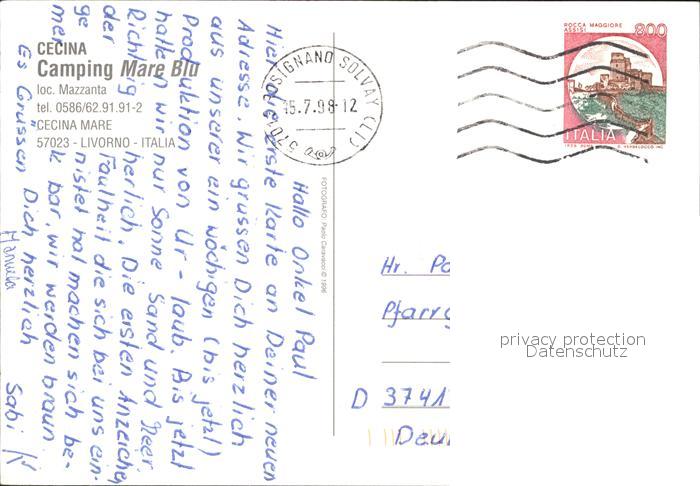 CECINA
Camping Mare Blu
loc. Mazzanta
tel. 0586/62.91.91-2
CECINA MARE
57023 - LIVORNO - ITALIA
Hallo Onkel Paul
Hier die erste Karte an Deiner neuen
Adresse. Wir grüssen Dich herzlich
aus unserer ein wöchigen (bis jetzt)
Produktion von Ur-laub. Bis jetzt
hatten wir nur Sonne Sand und Meer.
Richtig herlich. Die ersten Anzeichen
der Faulheit die sich bei uns ein-
ge nistet hat machen sich be-
merk bar, wir werden braun
Es Grüssen Dich herzlich
Manuela Sabi
FOTOGRAFO: Paolo Caravacci © 1996
57013 ROSIGNANO SOLVAY (LI)
15.7.98-12
ROCCA MAGGIORE
ASSISI
800
ITALIA
Hr. Pa
Pfarrg
D 3741
Deu
privacy protection
Datenschutz